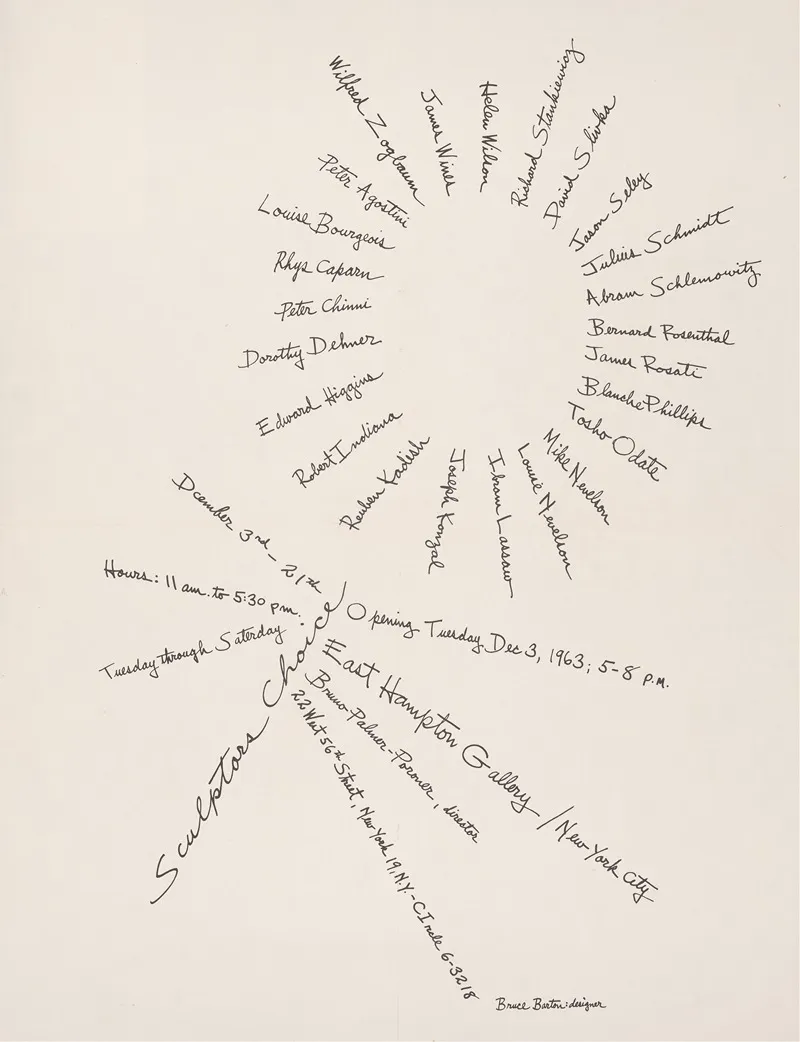 Peter Agostini
Louise Bourgeois
Rhys Caparn
Peter Chinni
Dorothy Dehner
Edward Higgins
Robert Indiana
Reuben Kadish
Joseph Konzal
Ibram Lassaw
Louise Nevelson
Mike Nevelson
Tosho Odate
Blanche Phillips
James Rosati
Bernard Rosenthal
Abram Schlemowitz
Julius Schmidt
Jason Seley
David Slivka
Richard Stankiewicz
Helen Wilson
James Wines
Wilfred Zogbaum
Sculptors Choice
Dcember 3rd - 21th
Hours: 11 am. to 5:30 pm.
Tuesday through Saterday
Opening Tuesday Dec 3, 1963; 5-8 P.M.
East Hampton Gallery / New York City
Bruno Palmer-Poroner, director
22 West 56th Street, New York 19, N.Y. - CIrcle 6-3218
Bruce Barton: designer